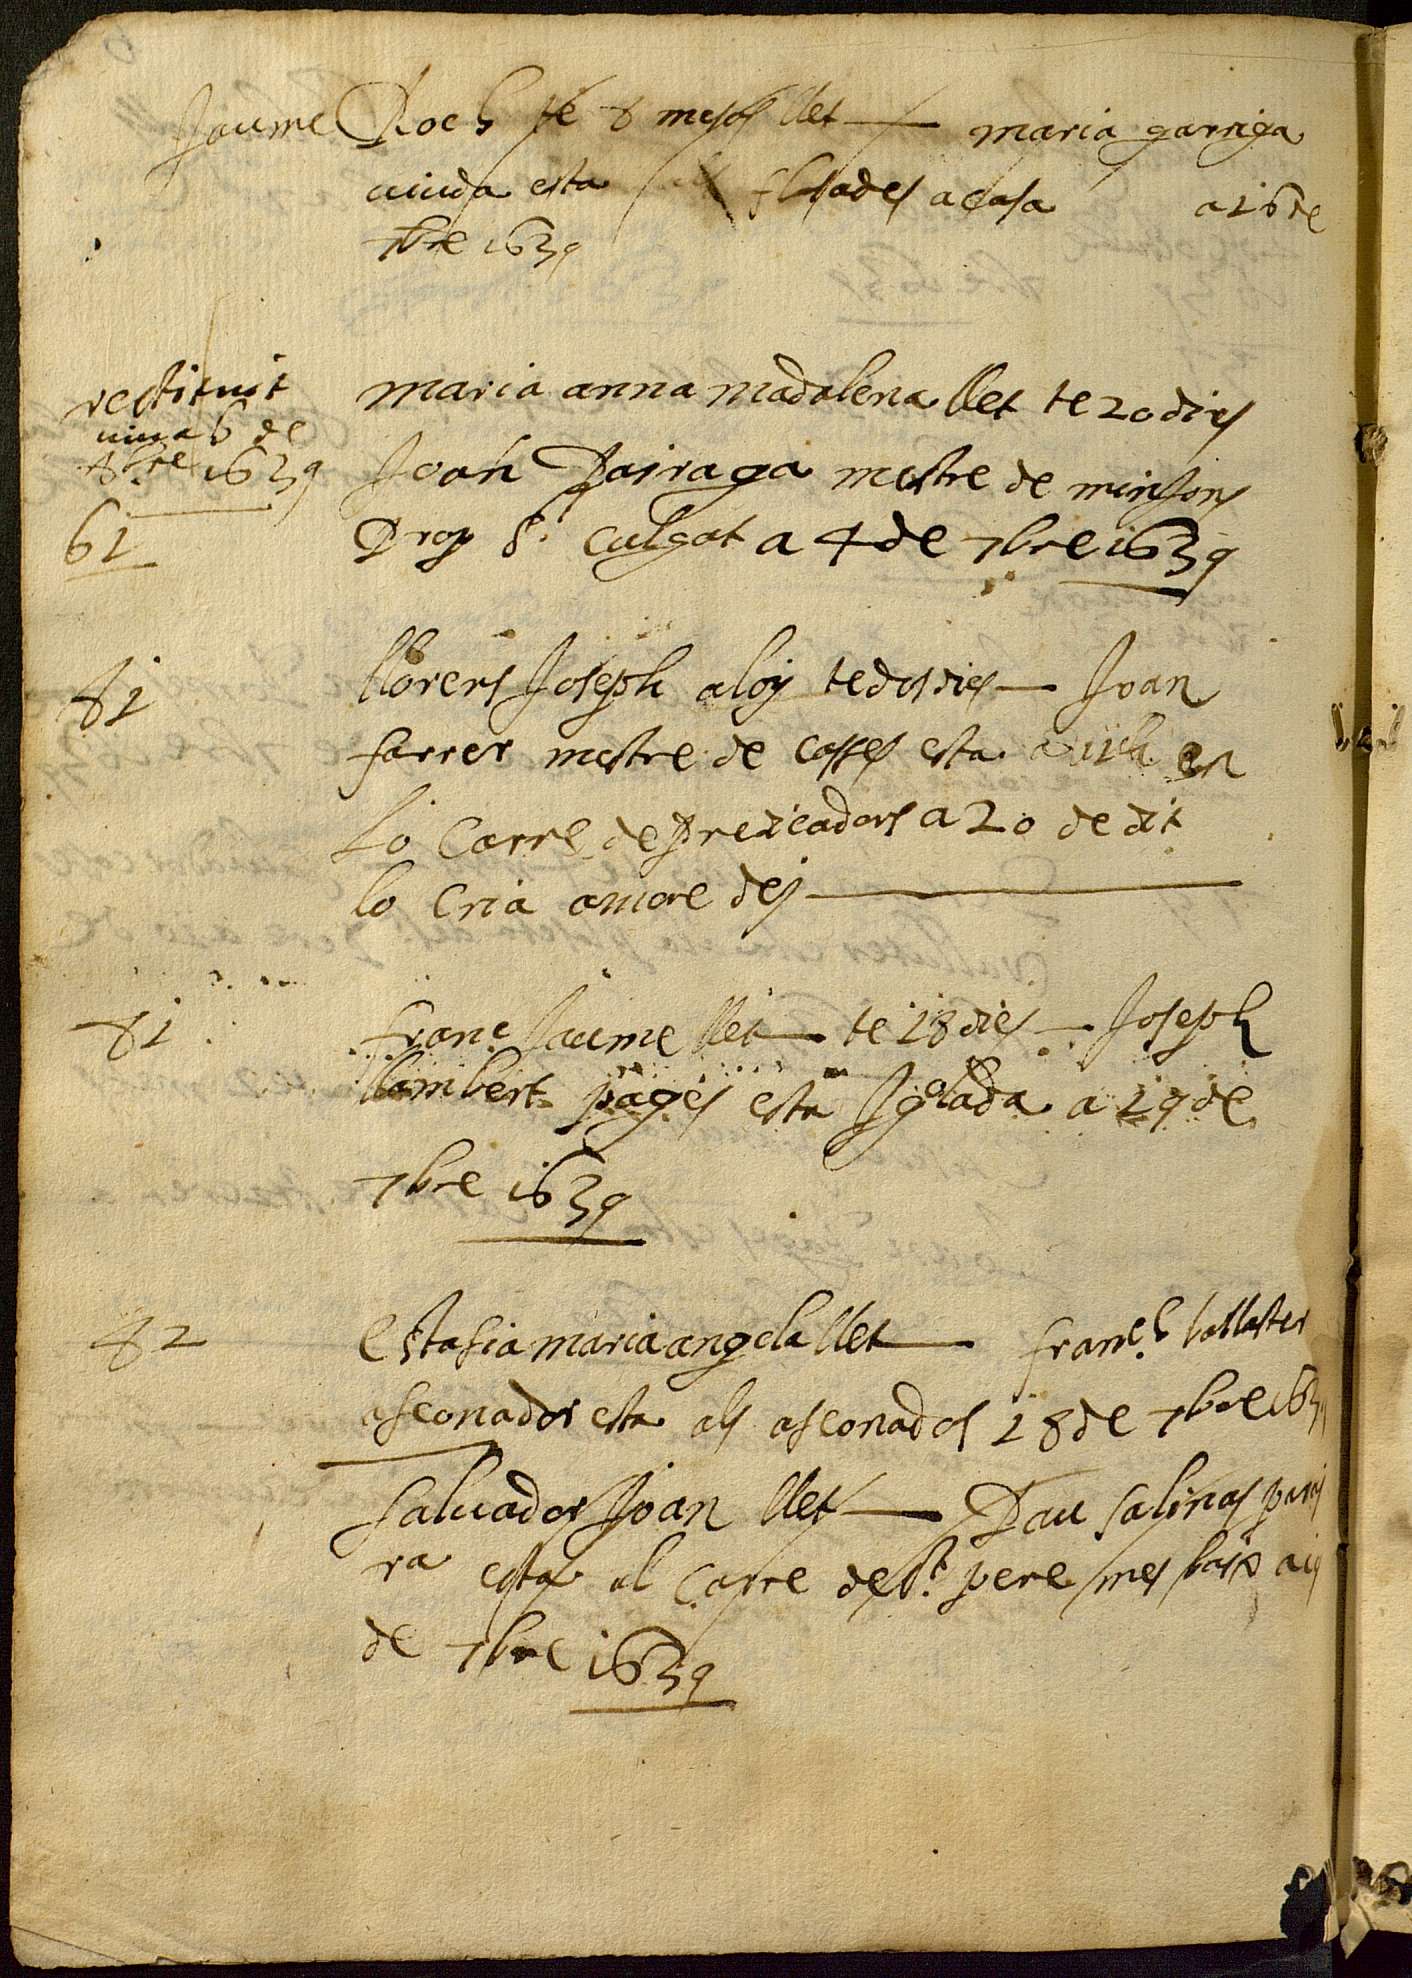 Jaume Roch te 8 mesos llet — maria garriga
viuda esta flasades a casa a 16 de
7bre 1639
restituit
viva 6 de
8bre 1639
61
maria anna madalena llet te 20 dies
Joan Parraga mestre de minsons
Prop St. Culgat a 4 de 7bre 1639
81
llorens Joseph aloy te dos dies — Joan
farrer mestre de cosses esta a vila en
lo carre de Predicadors a 20 de dit
lo cria amore dei
81
franc Jaume llet — te 18 dies — Joseph
llambert pages esta Igolada a 19 de
7bre 1639
82
estasia maria angela llet — franch ballaster
asaonador esta als asaonados 18 de 7bre 1639
salvador Joan llet — Pau salinas
ra esta al carre de St. pere mes baix
de 7bre 1639